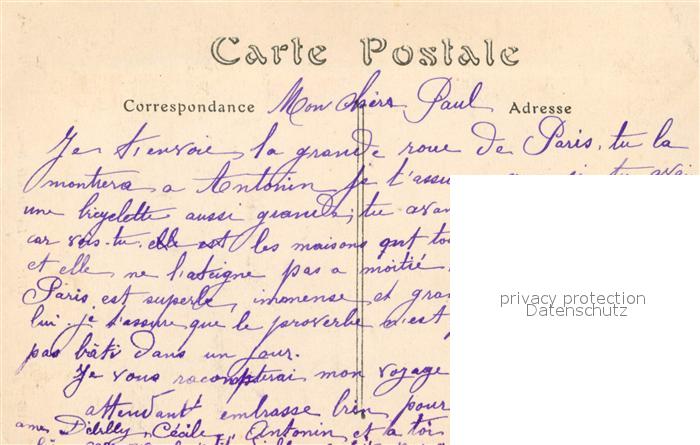 Carte Postale
Correspondance Mon chèrs Paul Adresse
Je t'envoie la grande roue de Paris, tu la
montrera a Antonin je t'assu
une bicyclette aussi grande, tu avan
car vois-tu elle est les maisons qut tou
et elle ne l'ateigne pas a moitié.
Paris est superbe, immense et gran
lui. je t'assure que le proverbe n'est
pas bâti dans un jour.
Je vous racompterai mon voyage
attendant embrasse bien pour
Cécile, Antonin et a toi
privacy protection
Datenschutz